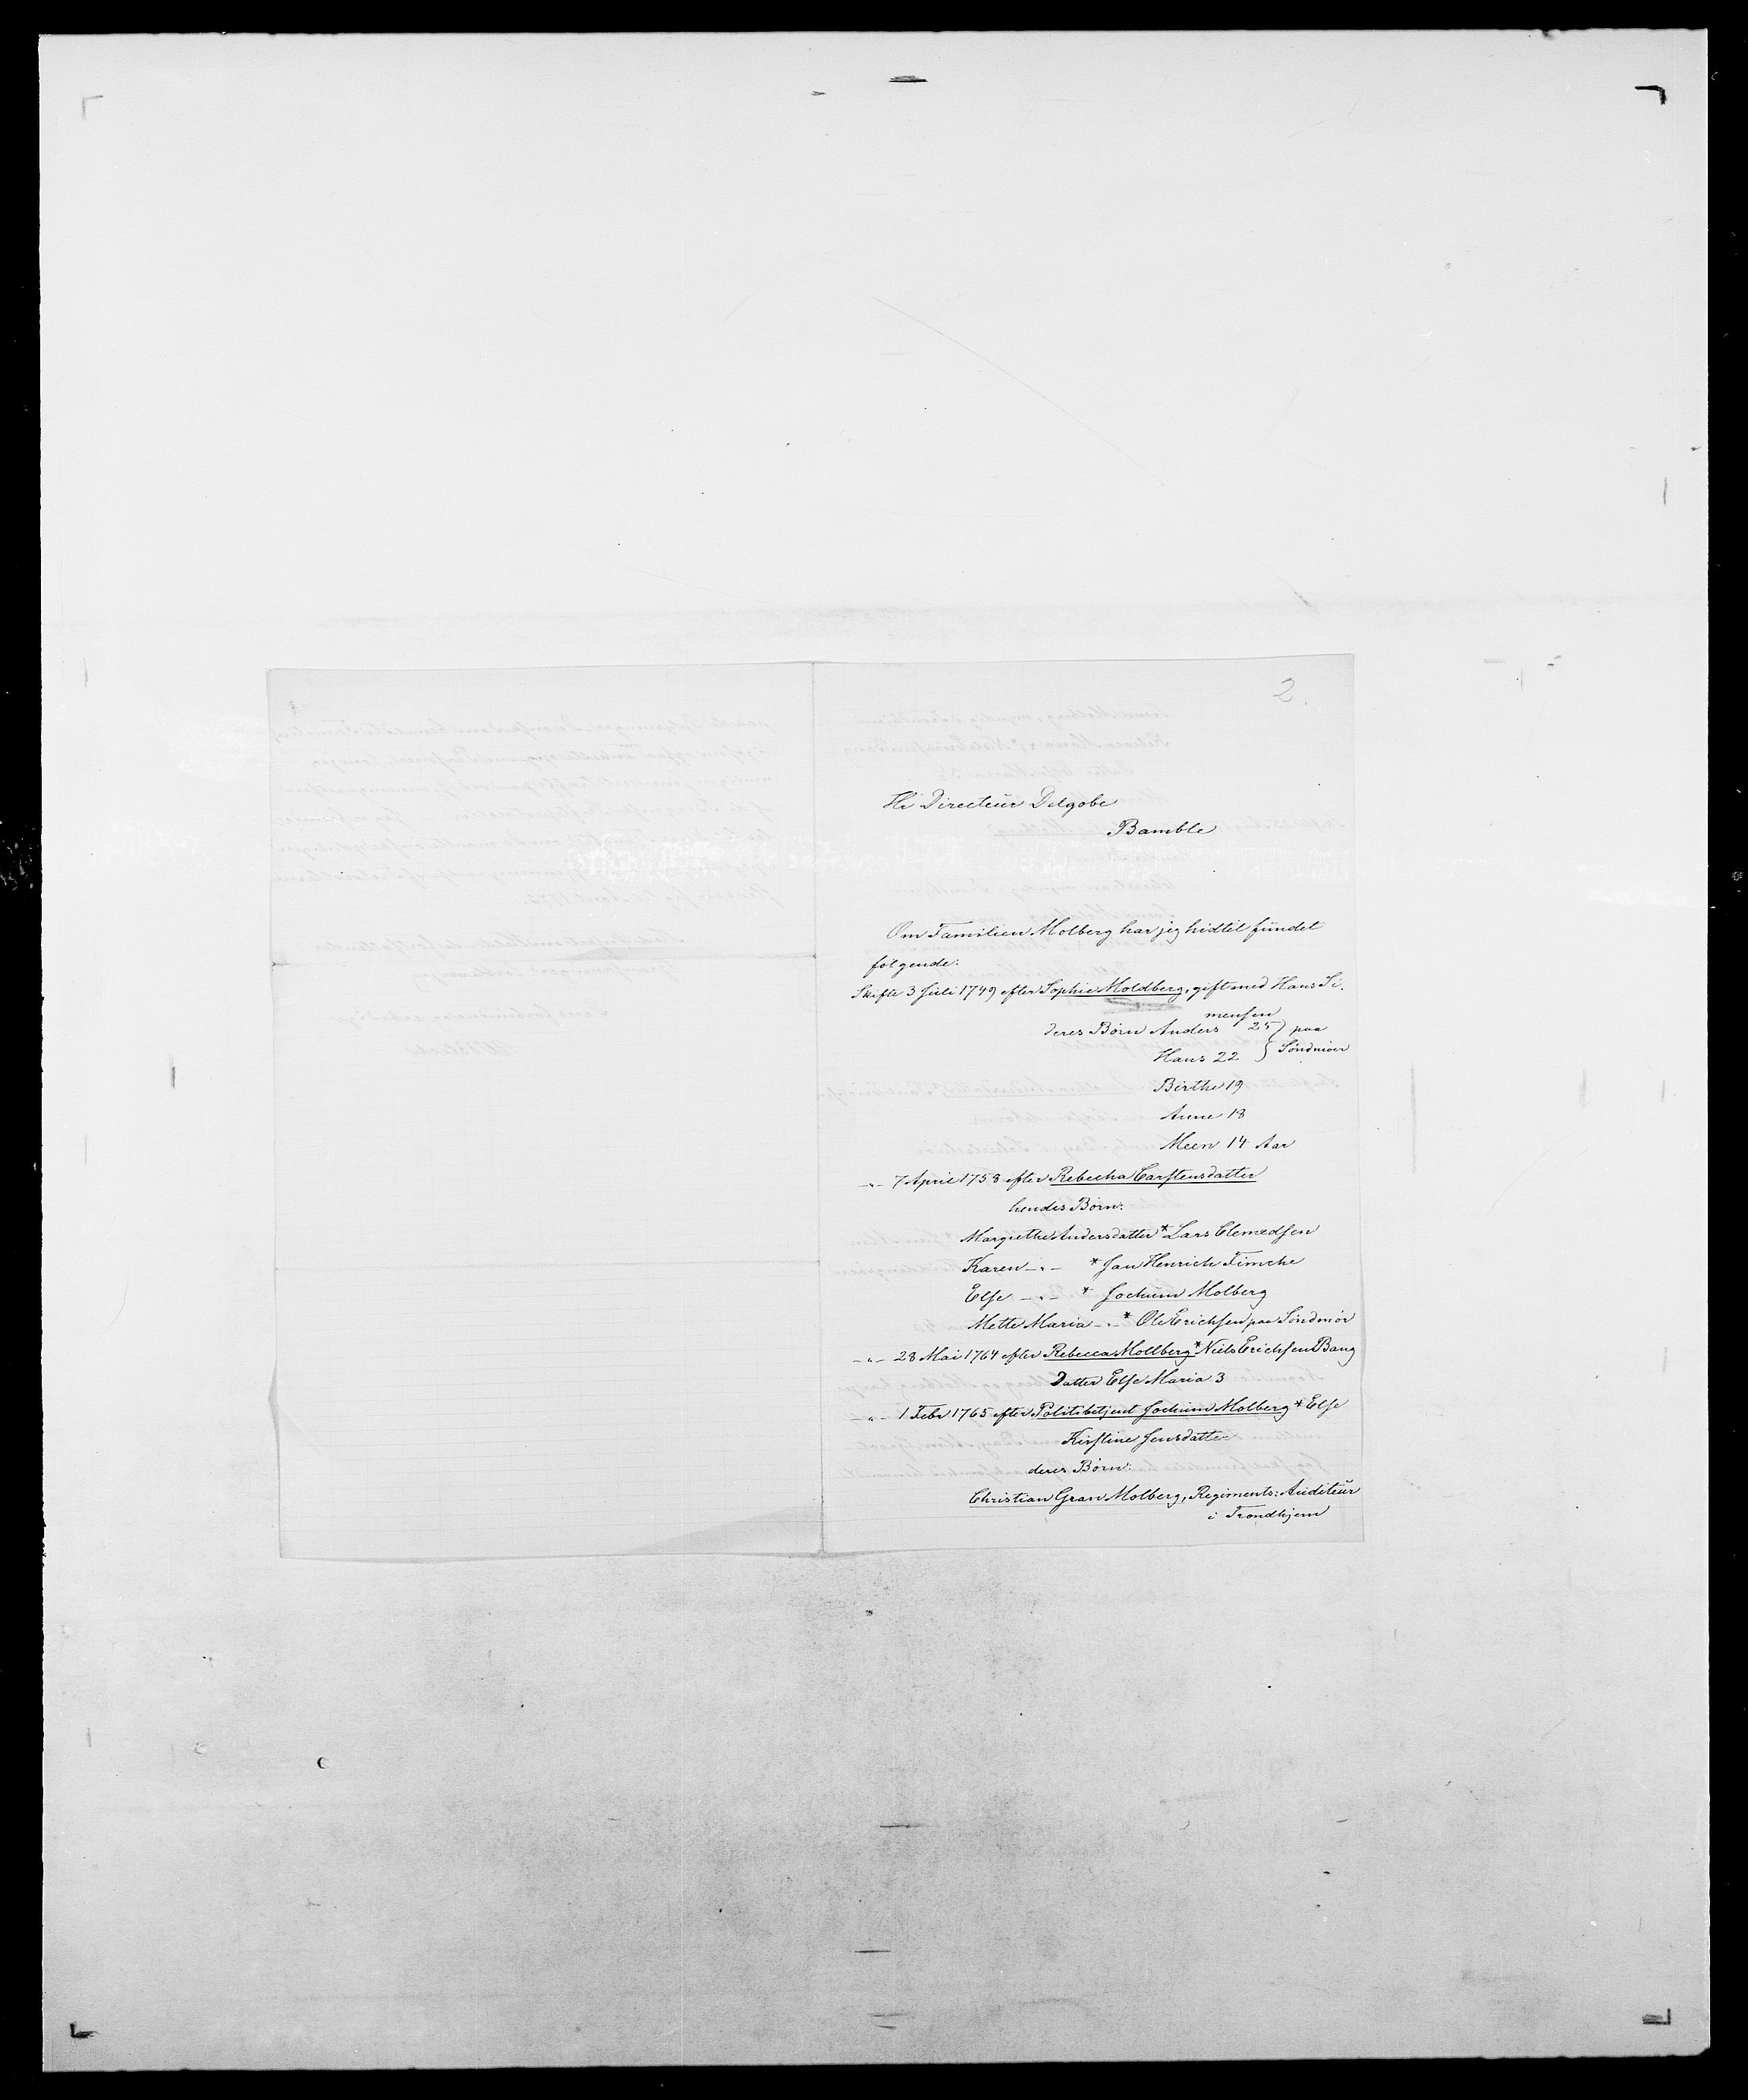 2.
Hr Directeür Delgobe
Bamble
Om Familien Molberg har jeg hidtil fündet
følgende:
Skifte 3 Jüli 1749 efter Sophie Moldberg, gift med Hans Si-
mensen
deres Børn Anders 25 } paa
Hans 22 } Søndmöer
Birthe 19
Anne 18
Meen 14 Aar
-"- 7 April 1758 efter Rebecha Carstensdatter
hendes Børn:
Margrethe Andersdatter * Lars Clemedsen
Karen -"- * Jan Henrich Timche
Else -"- * Jochüm Molberg
Mette Maria -"- * Ole Erichsen paa Søndmör
-"- 28 Mai 1764 efter Rebecca Mollberg * Niels Erichsen Bang
Datter Else Maria 3
-"- 1 Febr 1765 efter Politibetjent Jochüm Molberg * Else
Kirstine Jensdatter
deres Børn:
Christian Gran Molberg, Regiments: Aüditeür
i Trondhjem